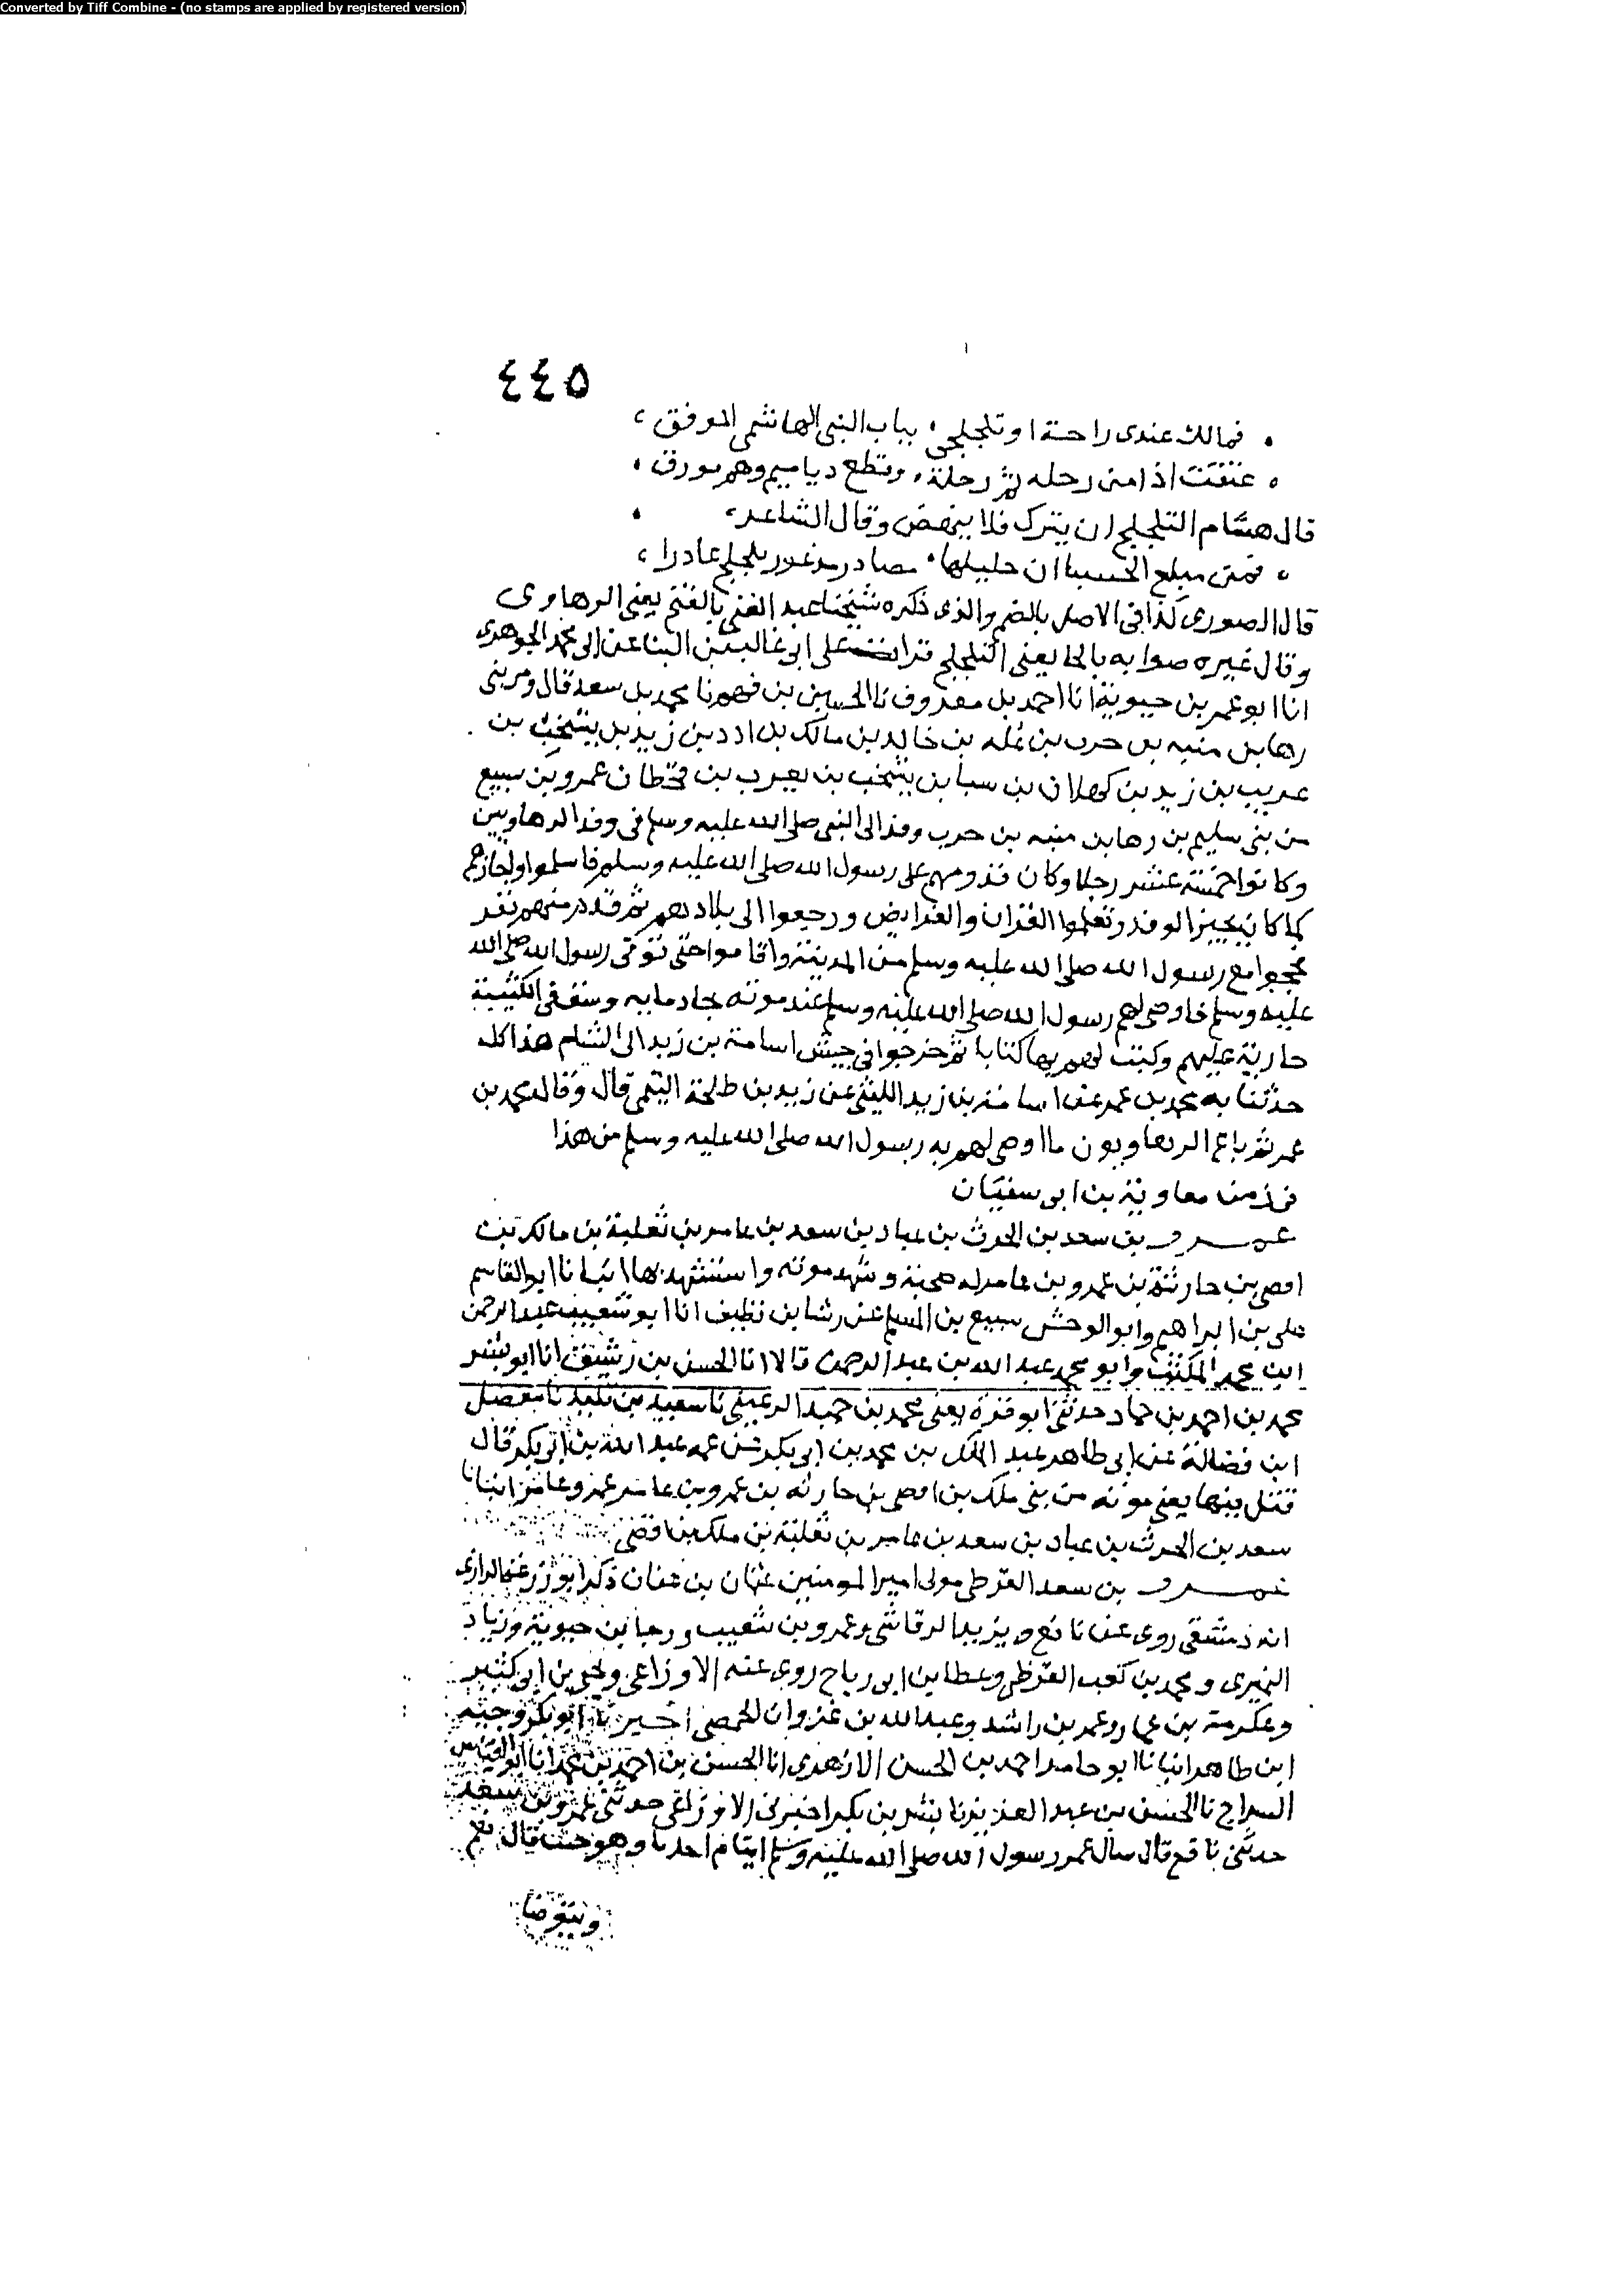 Converted by Tiff Combine - (no stamps are applied by registered version)
٤٤٥
فمالك عندى راحة او تلجلجى ، بباب النبى الهاشمى الموفق ،
عتقت اذا من رحله ثم رحلة ، وقطع دياميم وهم مورق ،
قال هشام التلجلج ان يترك فلا ينهض وقال الشاعر ،
فمن مبلغ الحسنا ان حليلها ، مصاد بن مذعور تلجلج غادرا ،
قال الصورى كذا فى الاصل بالضم والذى ذكره شيخنا عبد الغنى بالفتح يعنى الرهاوى
وقال غيره صوابه بالحا يعنى التلجلج قرات على ابى غالب بن البنا عن ابى محمد الجوهرى
انا ابو عمر بن حيوية انا احمد بن معروف نا الحسين بن فهم نا محمد بن سعد قال ومن بنى
رها بن منبه بن حرب بن عله بن خالد بن مالك بن ادد بن زيد بن يشخب بن
عريب بن زيد بن كهلان بن سبا بن يشخب بن يعرب بن قحطان عمرو بن سبيع
من بنى سليم بن رها بن منبه بن حرب وفد الى النبى صلى الله عليه وسلم فى وفد الرهاويين
وكانوا خمسة عشر رجلا وكان قدومهم على رسول الله صلى الله عليه وسلم فاسلموا واجازهم
كما كان يجيز الوفد وتعلموا القران والفرايض ورجعوا الى بلادهم ثم قدم منهم نفر
فحجوا مع رسول الله صلى الله عليه وسلم من المدينة واقاموا حتى توفى رسول الله صلى الله
عليه وسلم فاوصى لهم رسول الله صلى الله عليه وسلم عند موته بجاد مايه وسق فى الكتيبة
جارية عليهم وكتب لهم بها كتابا ثم خرجوا فى جيش اسامة بن زيد الى الشام هذا كله
حدثنا به محمد بن عمر عن اسامة بن زيد الليثى عن زيد بن طلحة التيمى قال وقال محمد بن
عمر ثم باع الرهاويون ما اوصى لهم به رسول الله صلى الله عليه وسلم من هذا
فى زمن معاوية بن ابى سفيان
عمرو بن سعد بن الحرث بن عباد بن سعد بن عامر بن ثعلبة بن مالك بن
افصى بن حارثة بن عمرو بن عامر له صحبة وشهد موته واستشهد بها انبانا ابو القاسم
على بن ابراهيم وابو الوحش سبيع بن المسلم عن رشا بن نظيف انا ابو شعيب عبد الرحمن
ابن محمد المكتب وابو محمد عبد الله بن عبد الرحمن قالا انا الحسن بن رشيق انا ابو بشر
محمد بن احمد بن حماد حدثنى ابو قرة يعنى محمد بن حميد الرعينى نا سعيد بن تليد نا مفضل
ابن فضالة عن ابى طاهر عبد الملك بن محمد بن ابى بكر عن عمه عبد الله بن ابى بكر قال
قتل بها يعنى موته من بنى ملك بن افصى بن حارثه بن عمرو بن عامر عمرو وعامر ابنا
سعد بن الحرث بن عباد بن سعد بن عامر بن ثعلبة بن ملك بن افصى
عمرو بن سعد القرظى مولى امير المومنين عثمان بن عفان ذكر ابو زرعة الرازى
انه دمشقى روى عن نافع ويزيد الرقاشى وعمرو بن شعيب ورجا بن حيوية وزياد
النميرى ومحمد بن كعب القرظى وعطا بن ابى رباح روى عنه الاوزاعى ويحيى بن ابى كثير
وعكرمة بن عمار وعمر بن راشد وعبد الله بن غزوان الحمصى اخبرنا ابو بكر وجيه
ابن طاهر انبانا ابو حامد احمد بن الحسن الازهرى انا الحسن بن احمد بن محمد انا ابو العباس
السراج نا الحسن بن عبد العزيز نا بشر بن بكر اخبرنى الاوزاعى حدثنى عمرو بن سعد
حدثنى نافع قال سال عمر رسول الله صلى الله عليه وسلم اينام احدنا وهو جنب قال نعم
ويتوضا